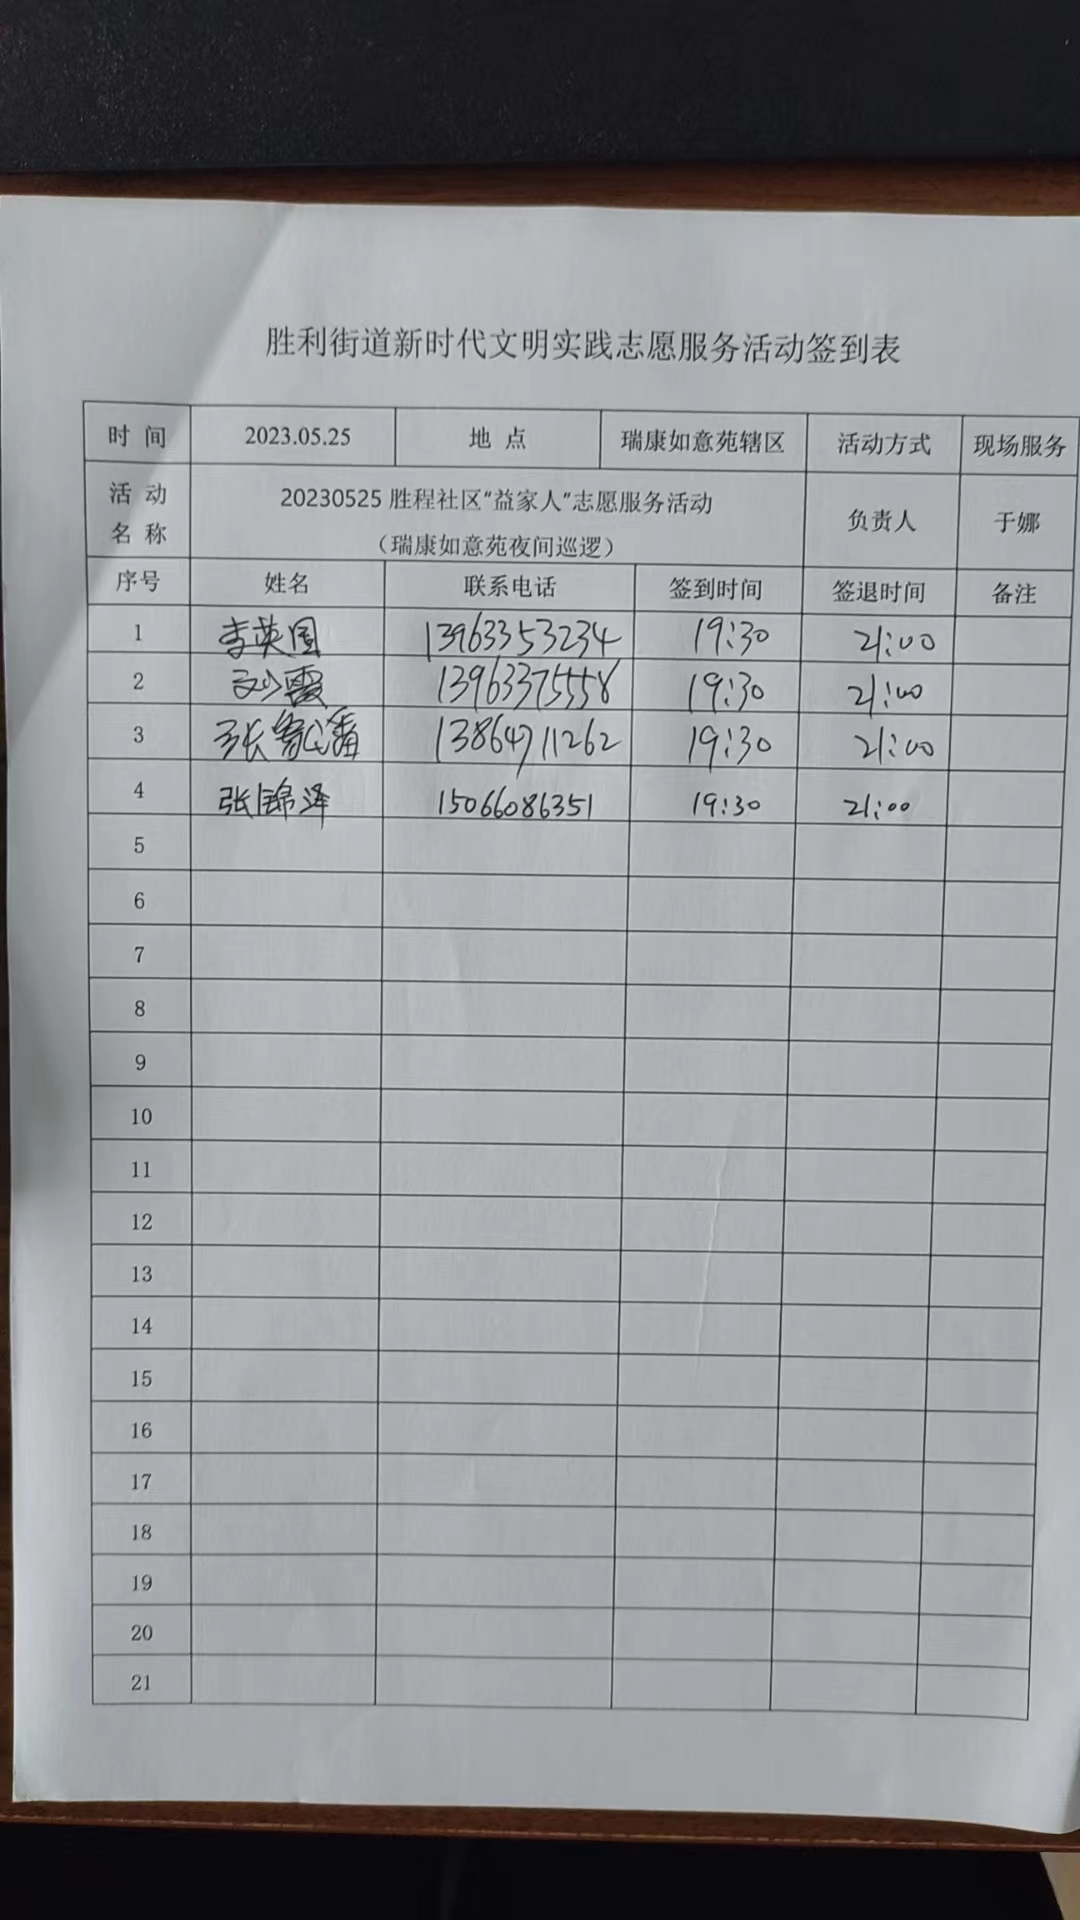 胜利街道新时代文明实践志愿服务活动签到表
时 间 2023.05.25 地 点 瑞康如意苑辖区 活动方式 现场服务
活 动 名 称 20230525 胜程社区“益家人”志愿服务活动 负责人 于娜
（瑞康如意苑夜间巡逻）
序号 姓名 联系电话 签到时间 签退时间 备注
1 李英国 13963353234 19:30 21:00
2 刘霞 13963375558 19:30 21:00
3 张 13864711262 19:30 21:00
4 张锦泽 15066086351 19:30 21:00
5
6
7
8
9
10
11
12
13
14
15
16
17
18
19
20
21